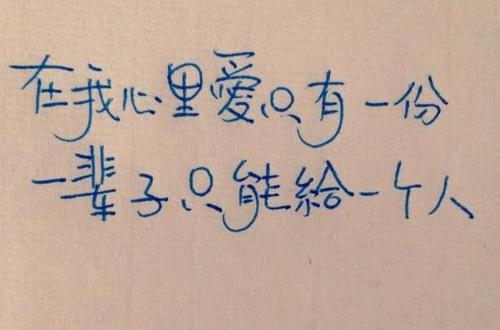 在我心里愛只有一份
一輩子只能給一个人